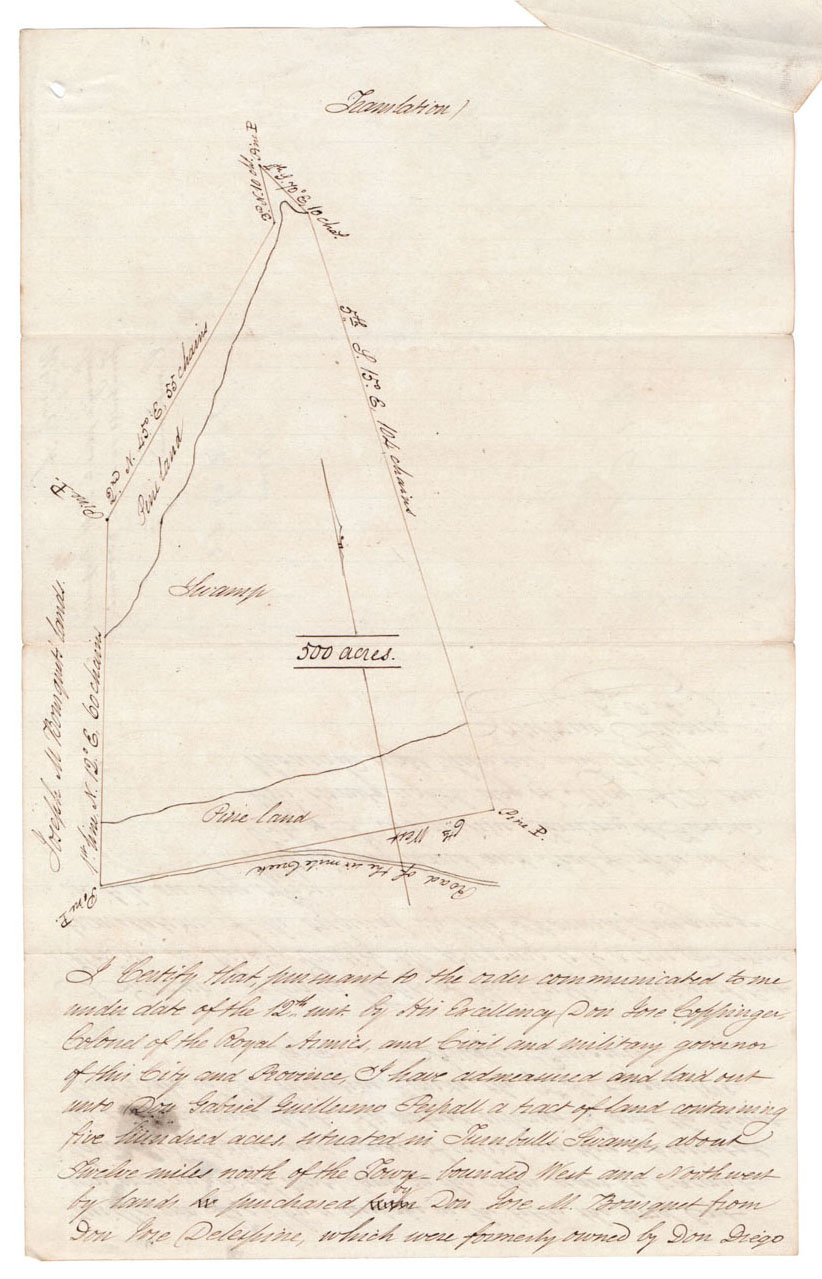 Translation)
3rd N. 10 ch. Pine P.
4th S. 70° E. 10 chs.
5th S. 15° E. 104 chains
2nd N. 45° E. 55 chains
Pine land
Pine P.
Swamp
500 acres.
Joseph M. Bousquets lands.
1st line N. 12° E. 60 chains
Pine land
6th West
Pine P.
Road of the six mile Creek
Pine P.
I Certify that, pursuant to the order communicated to me
under date of the 12th inst. by His Excellency Don Jose Coppinger,
Colonel of the Royal Armies, and Civil and military governor
of this City and Province, I have admeasured and laid out
unto Don Gabriel Guillermo Perpall a tract of land containing
five hundred acres, situated in Turnbulls Swamp, about
Twelve miles north of the Town - bounded West and Northwest
by lands purchased by Don Jose M. Bousquet from
Don Jose Delespine, which were formerly owned by Don Diego